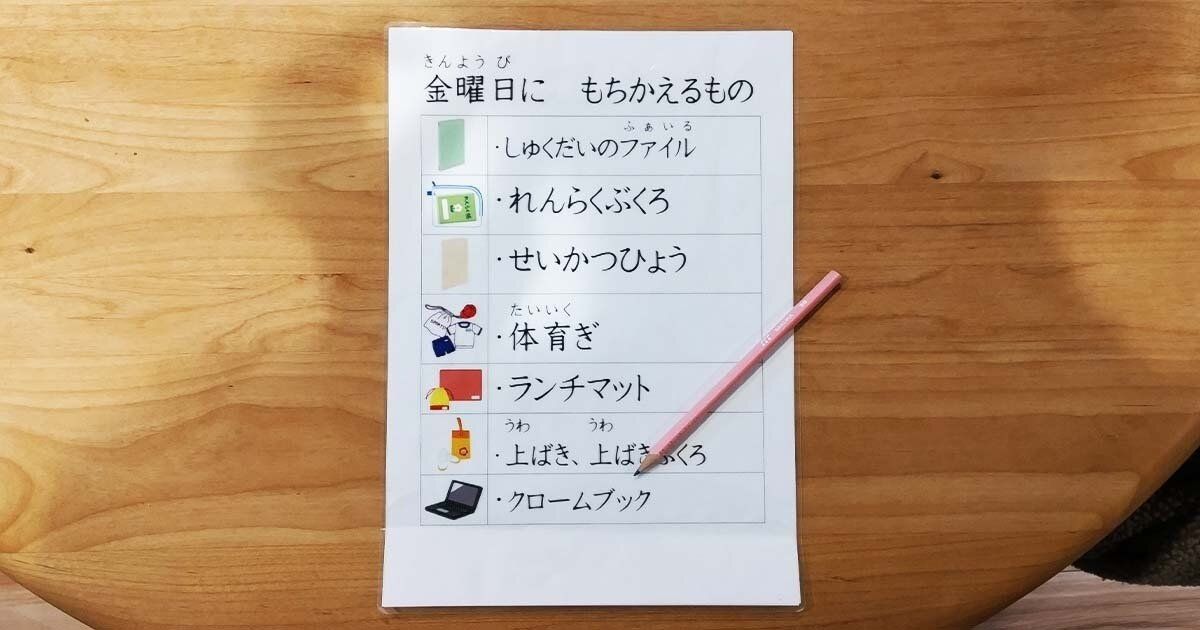 きんようび
金曜日に　もちかえるもの
ふぁいる
・しゅくだいのファイル
・れんらくぶくろ
・せいかつひょう
たいいく
・体育ぎ
・ランチマット
うわ　うわ
・上ばき、上ばきぶくろ
・クロームブック